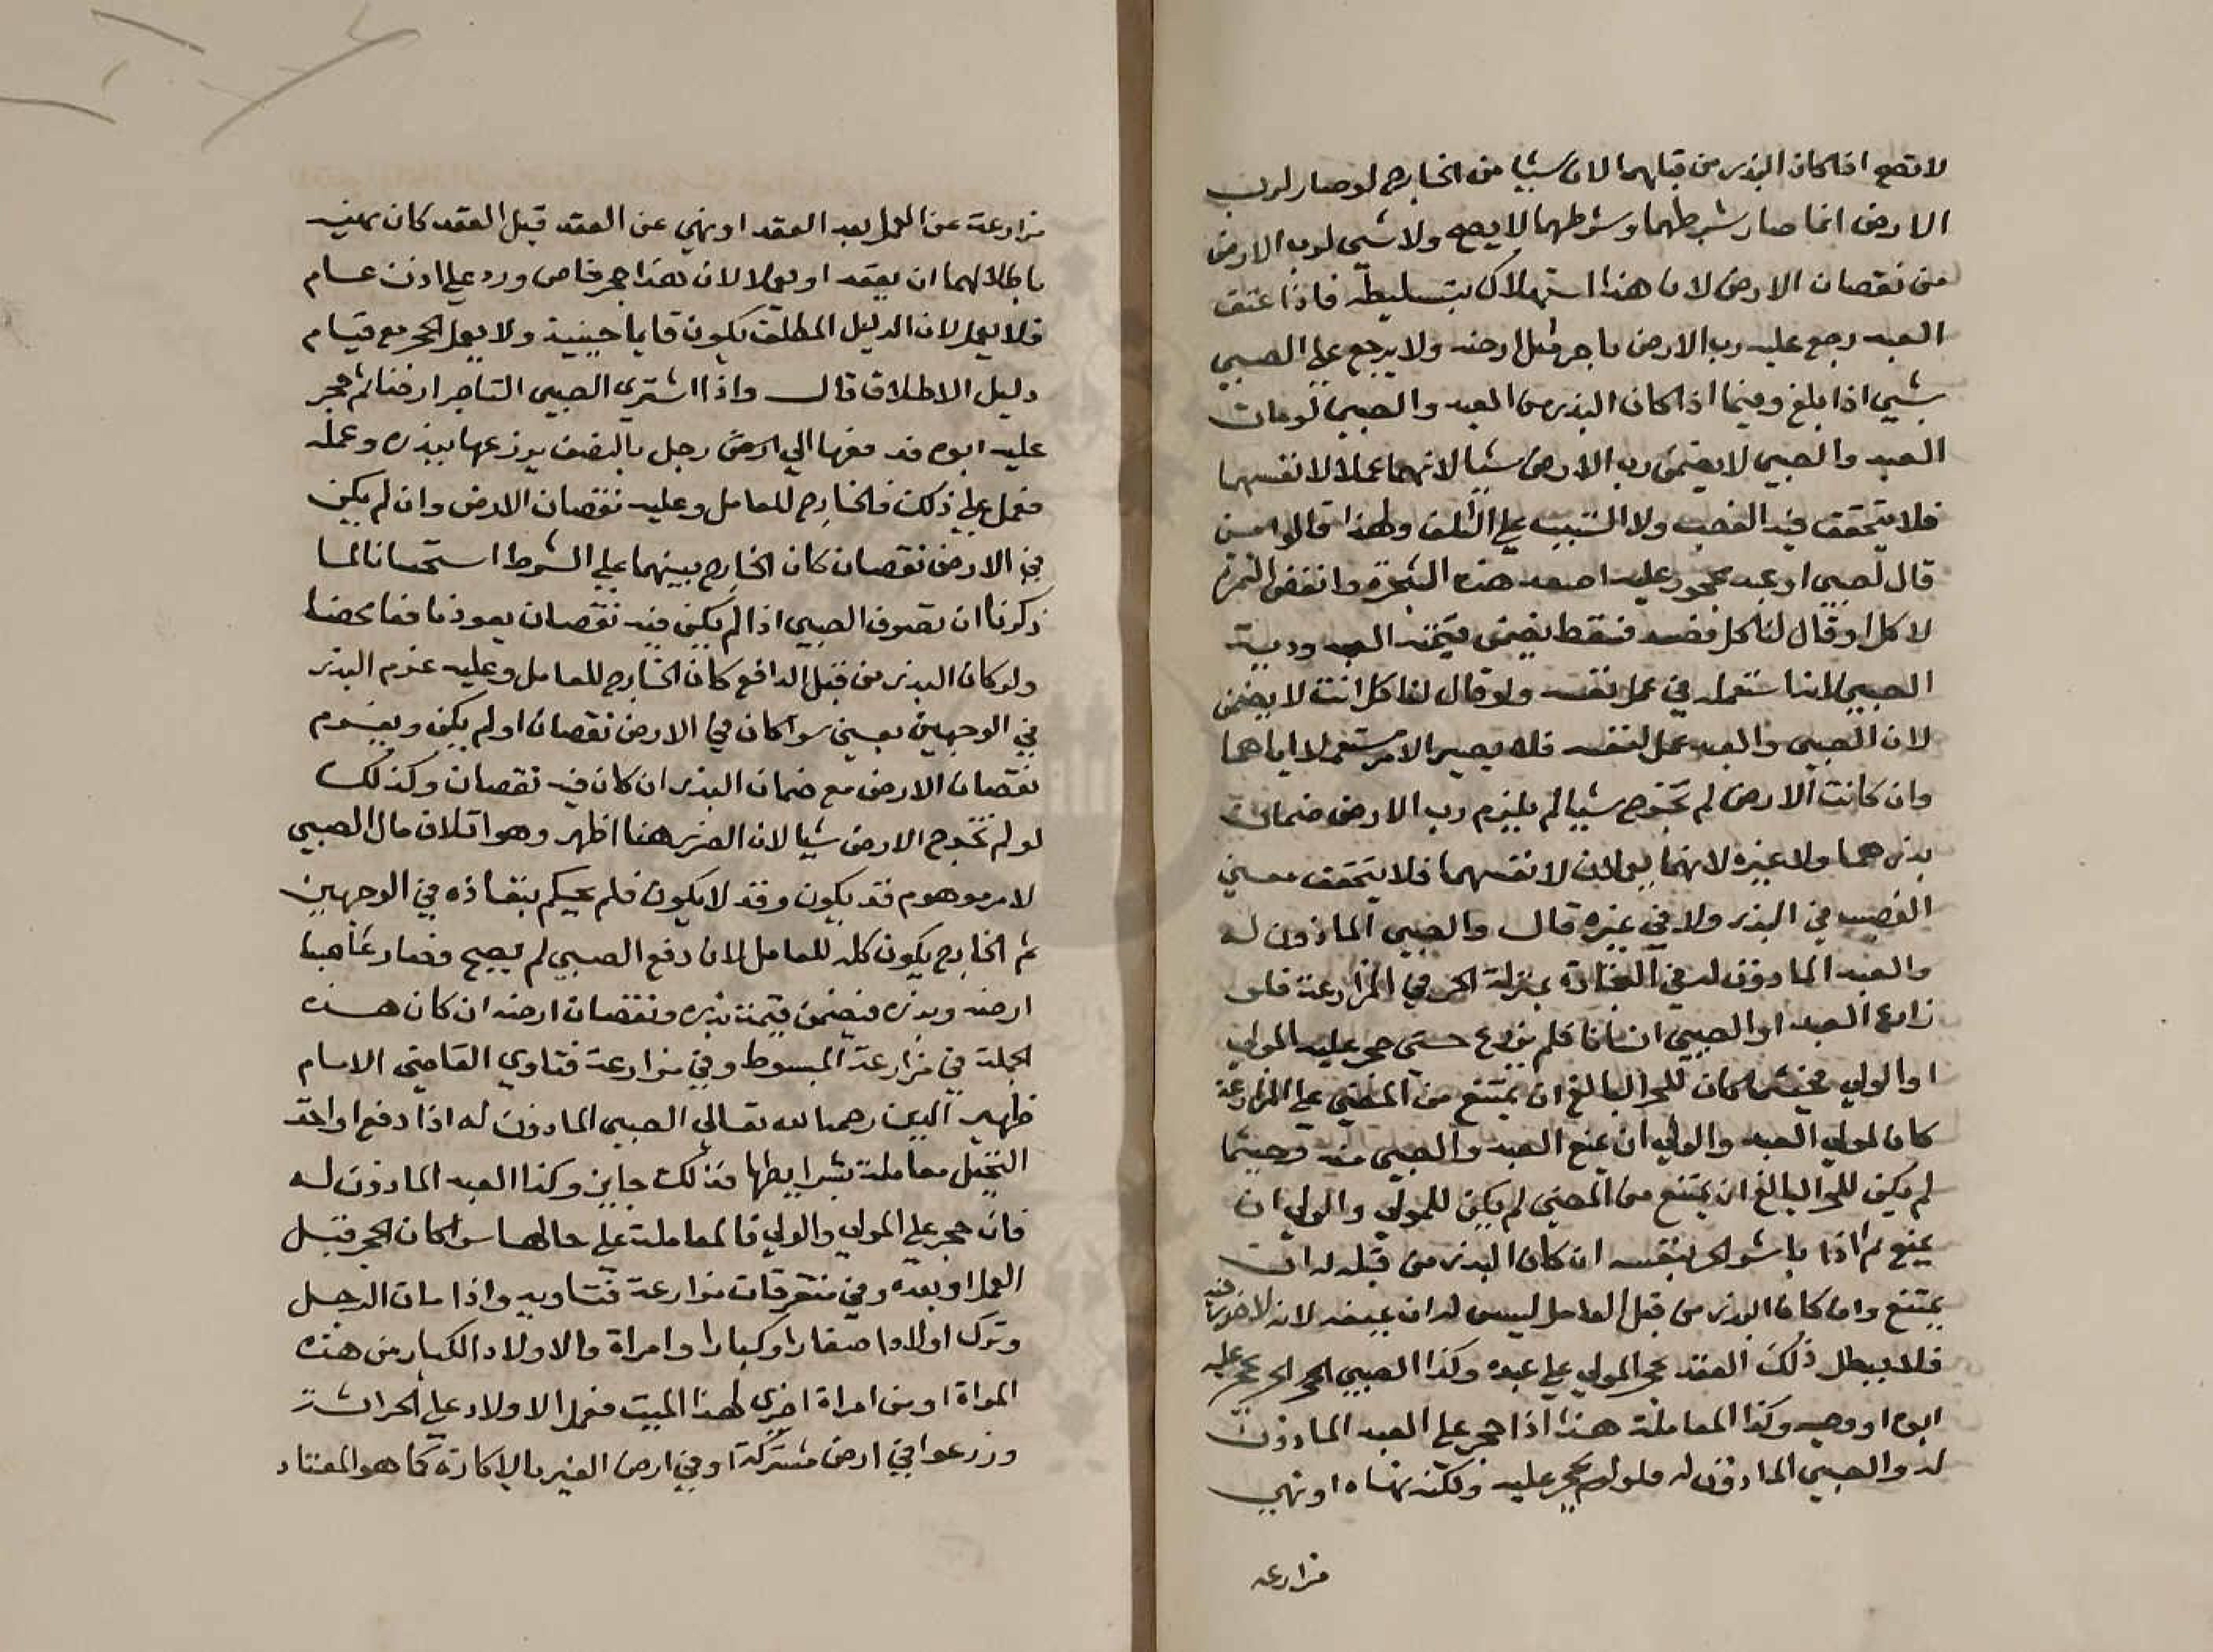 لا تصح اذا كان البذر من قبلهما لان شيئا من الخارج لو صار لرب
الارض انما صار بشرطهما وشرطهما لا يصح ولا شيى لرب الارض
من نقصان الارض لان هذا استهلاك بتسليطه فاذا عتق
العبد رجع عليه رب الارض باجر مثل ارضه ولا يرجع على الصبي
بشيى اذا بلغ وفيما اذا كان البذر من العبد والصبي لو مات
العبد والصبي لا يضمن رب الارض شيئا لانهما عملا لانفسهما
فلا يتحقق فيه الغصب ولا التسبب على التلف ولهذا قالوا من
قال لصبي او عبد محجور عليه اصعد هذه الشجرة وانفض الثمرة
لاكل او قال لناكل فصعد فسقط يضمن قيمة العبد ودية
الصبي لانه استعمله في عمل نفسه ولو قال لتاكل انت لا يضمن
لان الصبي والعبد عمل لنفسه فلا يصير الامر مستعملا اياهما
وان كانت الارض لم تخرج شيئا لم يلزم رب الارض ضمان
بذرهما ولا غيره لانهما يعملان لانفسهما فلا يتحقق معنى
الغصب في البذر ولا في غيره قال والصبي الماذون له
والعبد الماذون له في التجارة بمنزلة الحر في المزارعة فلو
زارع العبد او الصبي انسانا فلم يزرع حتى حجر عليه المولى
او الولي فحيثما كان للحر البالغ ان يمتنع من المضي على المزارعة
كان لمولى العبد والولي ان يمنع العبد والصبي منه وحيثما
لم يكن للحر البالغ ان يمتنع من المضي لم يكن للمولى والولي ان
يمنع ثم اذا باشر الحر بنفسه ان كان البذر من قبله له ان
يمتنع وان كان البذر من قبل العامل ليس له ان يمنعه لانه لا ضرر فيه
فلا يبطل ذلك العقد بحجر المولى على عبده وكذا الصبي الحر يحجر عليه
ابوه او وصيه وكذا المعاملة هذا اذا حجر على العبد الماذون
له والصبي الماذون له فلو لم يحجر عليه ولكنه نهاه او نهى
مزارعه
مزارعة عن العمل بعد العقد او نهي عن العقد قبل العقد كان نهيه
باطلا لهما ان يعقد او يعملا لان هذا حجر خاص ورد على اذن عام
فلا يعمل لان الدليل المطلق يكون قايما حينيذ ولا يعمل الحجر مع قيام
دليل الاطلاق قال واذا اشترى الصبي التاجر ارضا ثم حجر
عليه ابوه فدفعها الى رجل بالنصف يزرعها ببذره وعمله
فعمل على ذلك فالخارج للعامل وعليه نقصان الارض وان لم يكن
في الارض نقصان كان الخارج بينهما على الشرط استحسانا لما
ذكرنا ان تصرف الصبي اذا لم يكن فيه نقصان يعود نفعا محضا
ولو كان البذر من قبل الدافع كان الخارج للعامل وعليه غرم البذر
في الوجهين يعني سوا كان في الارض نقصان او لم يكن ويغرم
نقصان الارض مع ضمان البذر ان كان فيه نقصان وكذلك
لو لم تخرج الارض شيا لان الضرر هنا اظهر وهو اتلاف مال الصبي
لامر موهوم قد يكون وقد لا يكون فلم يحكم بنفاذه في الوجهين
ثم الخارج يكون كله للعامل لان دفع الصبي لم يصح فصار غاصبا
ارضه وبذره فيضمن قيمة بذره ونقصان ارضه ان كان هذه
الجملة في مزارعة المبسوط وفي مزارعة فتاوي القاضي الامام
ظهير الدين رحمه الله تعالى الصبي الماذون له اذا دفع او اخذ
النخيل معاملة بشرايطها فذلك جايز وكذا العبد الماذون له
فان حجر على المولى والولي فالمعاملة على حالها سوا كان الحجر قبل
العمل او بعده وفي متفرقات مزارعة فتاويه واذا مات الرجل
وترك اولادا صغارا وكبارا وامراة والاولاد الكبار من هذه
المراة او من امراة اخرى لهذا الميت فعمل الاولاد على الحراثة
وزرعوا في ارض مشتركة او في ارض الغير بالاكارة كما هو المعتاد